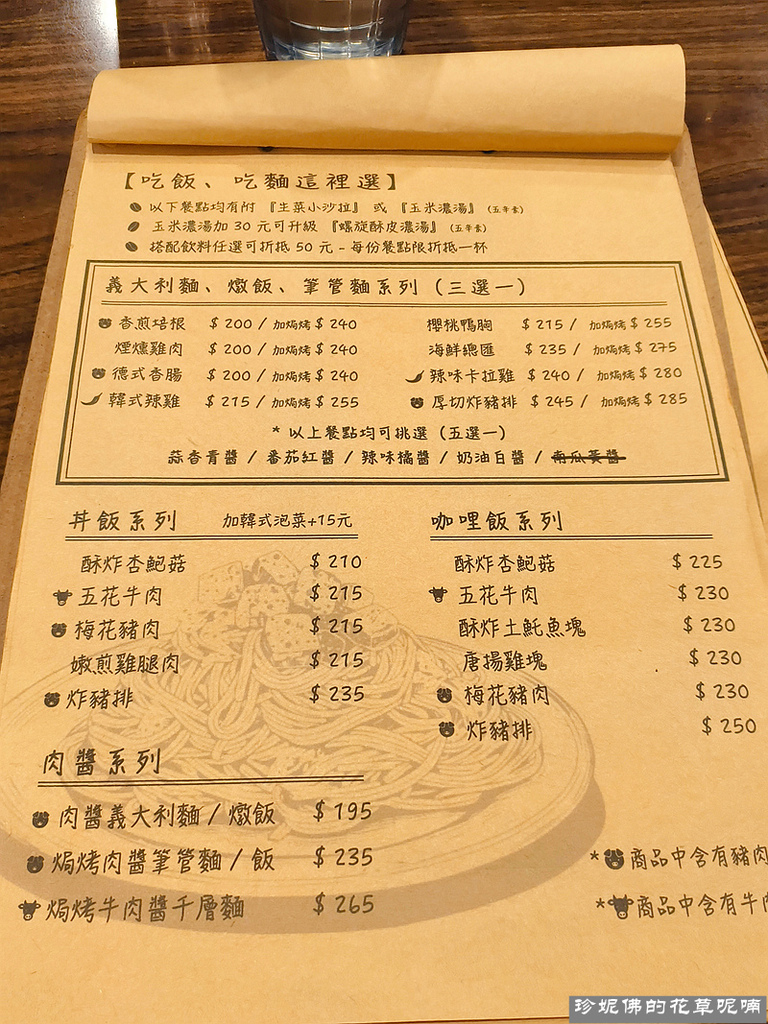 【吃飯、吃麵這裡選】
以下餐點均有附『生菜小沙拉』或『玉米濃湯』(五辛素)
玉米濃湯加 30 元可升級『螺旋酥皮濃湯』(五辛素)
搭配飲料任選可折抵 50 元 - 每份餐點限折抵一杯
義大利麵、燉飯、筆管麵系列 (三選一)
香煎培根 $200 / 加焗烤 $240
煙燻雞肉 $200 / 加焗烤 $240
德式香腸 $200 / 加焗烤 $240
韓式辣雞 $215 / 加焗烤 $255
櫻桃鴨胸 $215 / 加焗烤 $255
海鮮總匯 $235 / 加焗烤 $275
辣味卡拉雞 $240 / 加焗烤 $280
厚切炸豬排 $245 / 加焗烤 $285
* 以上餐點均可挑選 (五選一)
蒜香青醬 / 番茄紅醬 / 辣味橘醬 / 奶油白醬 / 南瓜黃醬
丼飯系列 加韓式泡菜+15元
酥炸杏鮑菇 $210
五花牛肉 $215
梅花豬肉 $215
嫩煎雞腿肉 $215
炸豬排 $235
咖哩飯系列
酥炸杏鮑菇 $225
五花牛肉 $230
酥炸土魠魚塊 $230
唐揚雞塊 $230
梅花豬肉 $230
炸豬排 $250
肉醬系列
肉醬義大利麵 / 燉飯 $195
焗烤肉醬筆管麵 / 飯 $235
焗烤牛肉醬千層麵 $265
* 商品中含有豬肉
* 商品中含有牛肉
珍妮佛的花草呢喃